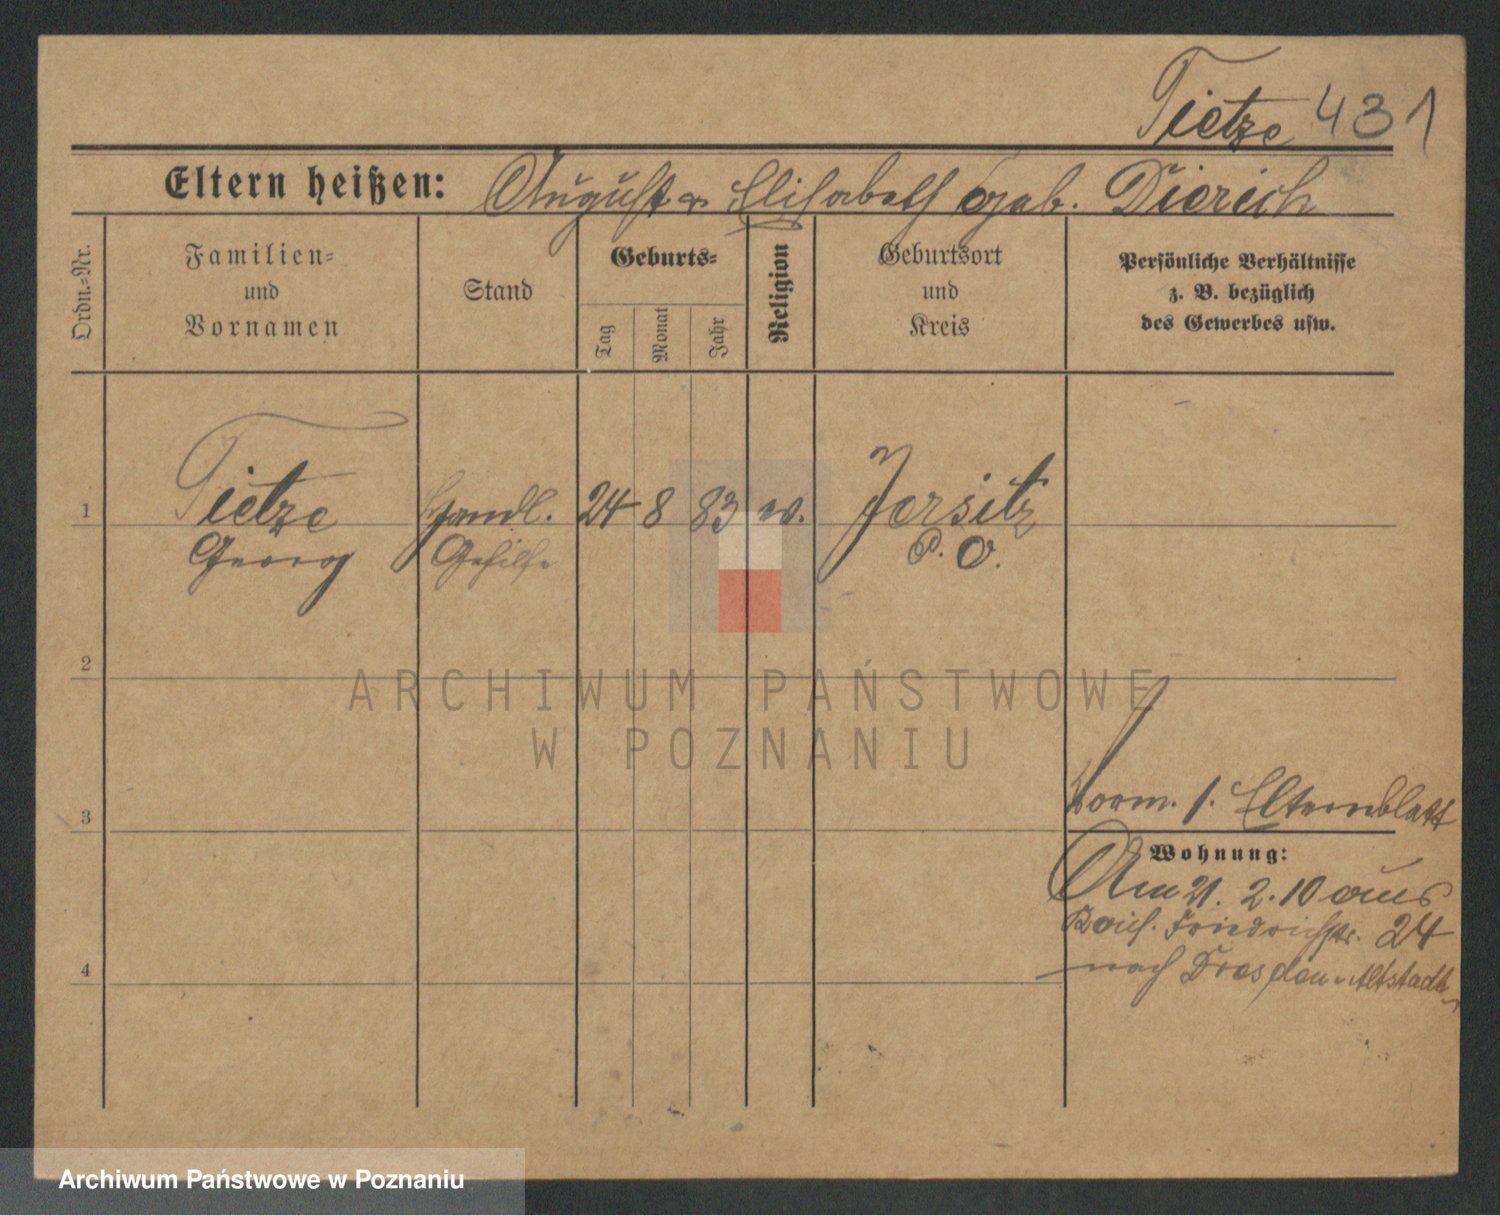 Tietze 431
Eltern heißen: August u. Elisabeth geb. Dierich
Ordn.-Nr.
Familien-
und
Vornamen
Stand
Geburts-
Tag
Monat
Jahr
Religion
Geburtsort
und
Kreis
Persönliche Verhältnisse
z. B. bezüglich
des Gewerbes usw.
1 Tietze Handl. 24 8 83 ev. Jersitz
Georg Gehilfe P. O.
2
ARCHIWUM PAŃSTWOWE
W POZNANIU
Vorm. s. Elternblatt
3
Wohnung:
Am 21. 2. 10 aus
Friedrichstr. 24
nach Dresden-Altstadt
4
Archiwum Państwowe w Poznaniu